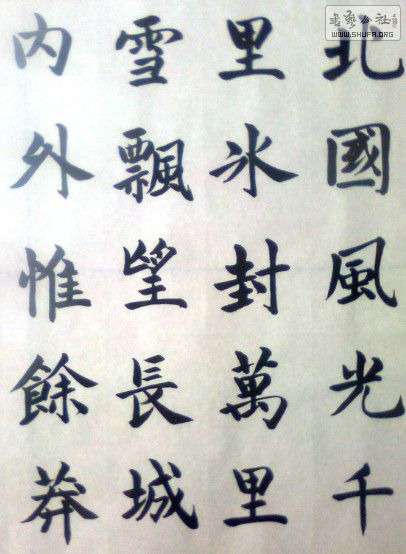 北國風光千
里氷封萬里
雪飄望長城
内外惟餘莽
书艺公社
www.SHUFA.ORG